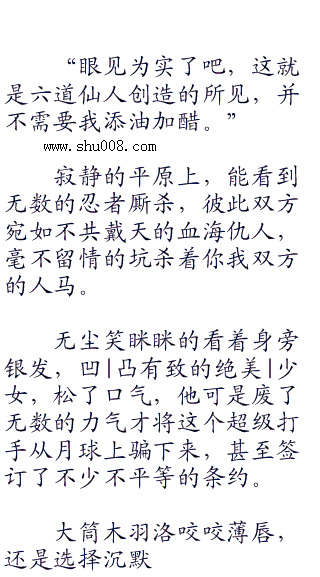 “眼见为实了吧，这就
是六道仙人创造的所见，并
不需要我添油加醋。”
www.shu008.com
寂静的平原上，能看到
无数的忍者厮杀，彼此双方
宛如不共戴天的血海仇人，
毫不留情的坑杀着你我双方
的人马。
无尘笑眯眯的看着身旁
银发，凹|凸有致的绝美|少
女，松了口气，他可是废了
无数的力气才将这个超级打
手从月球上骗下来，甚至签
订了不少不平等的条约。
大筒木羽洛咬咬薄唇，
还是选择沉默